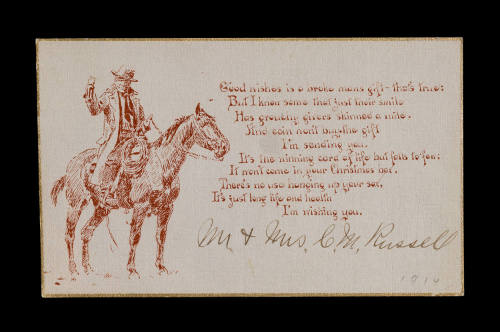 Good wishes is a broke mans gift - thats true:
But I know some that just their smile
Has grouchy givers skinned a mile,
And coin wont buy the gift
I'm sending you.
It's the winning card of life but fails to few:
It wont come in your Christmas box,
There's no use hanging up your sox,
It's just long life and health
I'm wishing you.
Mr. & Mrs. C. M. Russell
1914